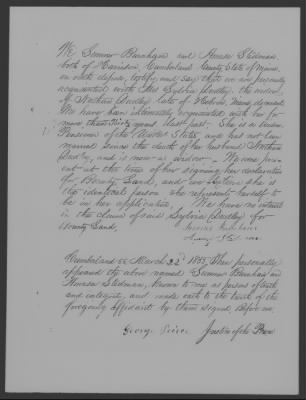 We Sumner Burnham and Amasa Stedman,
both of Harrison, Cumberland County State of Maine,
on oath depose, certify and say that we are personally
acquainted with Mrs Sylvia Dudley, the widow
of Nathan Dudley late of Maine, deceased
We have been intimately acquainted with her for
more than thirty years last past. She is a
Pensioner of the United States, and has not been
married since the death of her husband Nathan
Dudley, and is now a widow. We were pres-
ent at the time of her signing her declaration
for Bounty Land, and we believe she is
the identical person who represents herself to
be in her application. We have no interest
in the claim of said Sylvia Dudley for
Bounty Land,
Sumner Burnham
Amasa Stedman
Cumberland ss March 22d 1855. Then personally
appeared the above named Sumner Burnham and
Amasa Stedman, known to me as persons of truth
and integrity, and made oath to the truth of the
foregoing affidavit by them signed, Before me,
George Peirce Justice of the Peace